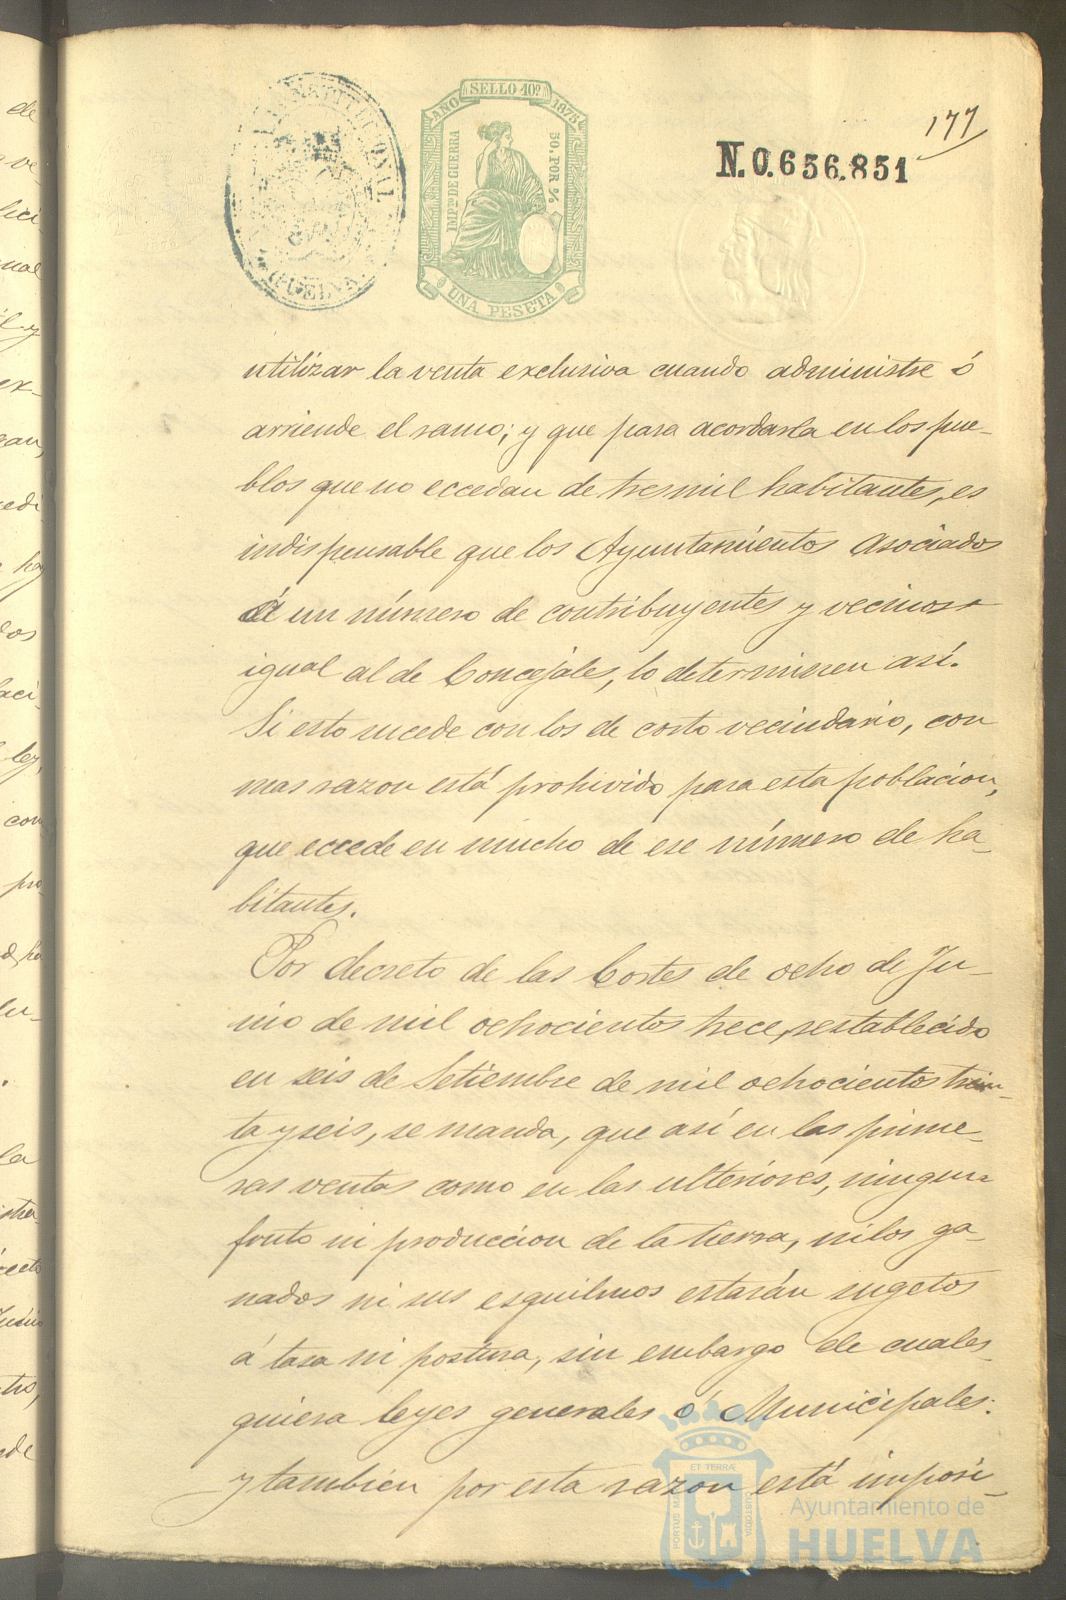 177
N. 0.656.851
AÑO SELLO 10º 1875
IMPTO DE GUERRA
50 POR %
UNA PESETA
CONSTITUCIONAL
HUELVA
utilizar la venta exclusiva cuando administre ó
arriende el ramo; y que para acordarla en los pue-
blos que no eccedan de tres mil habitantes, es
indispensable que los Ayuntamientos asociados
á un número de contribuyentes y vecinos
igual al de Concejales, lo determinen así.
Si esto sucede con los de corto vecindario, con
mas razon está prohivido para esta poblacion,
que eccede en mucho de ese número de ha-
bitantes.
Por decreto de las Cortes de ocho de Ju-
nio de mil ochocientos trece, restablecido
en seis de Setiembre de mil ochocientos trein-
ta y seis, se manda, que así en las prime-
ras ventas como en las ulteriores, ningun
fruto ni produccion de la tierra, ni los ga-
nados ni sus esquilmos estarán sugetos
á tasa ni postura, sin embargo de cuales-
quiera leyes generales ó Municipales:
y tambien por esta razon está imposi-
ET TERRÆ
PORTUS MA
CUSTODIA
Ayuntamiento de
HUELVA